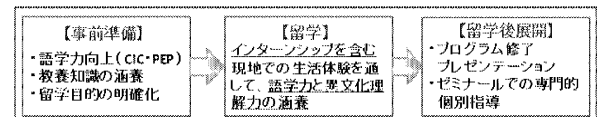 【事前準備】
・語学力向上(CIC・PEP)
・教養知識の涵養
・留学目的の明確化
【留学】
インターンシップを含む
現地での生活体験を通
して、語学力と異文化理
解力の涵養
【留学後展開】
・プログラム修了
プレゼンテーション
・ゼミナールでの専門的
個別指導